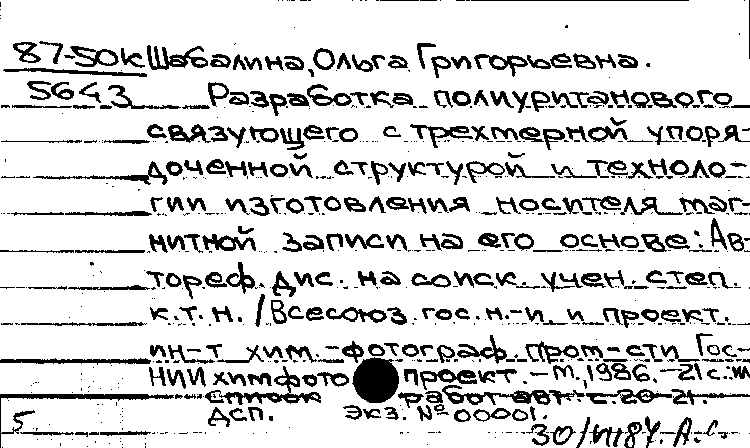 87-50к Шабалина, Ольга Григорьевна.
5643 Разработка полиуританового
связующего с трехмерной упоря-
доченной структурой и техноло-
гии изготовления носителя маг-
нитной записи на его основе: Ав-
тореф. дис. на соиск. учен. степ.
к.т.н. /Всесоюз. гос. н.-и. и проект.
ин-т хим.-фотограф. пром-сти Гос-
НИИхимфото проект. - М., 1986. - 21 с.: ил
Список работ авт.: с. 20-21.
5 ДСП. Экз. № 00001.
А.С.